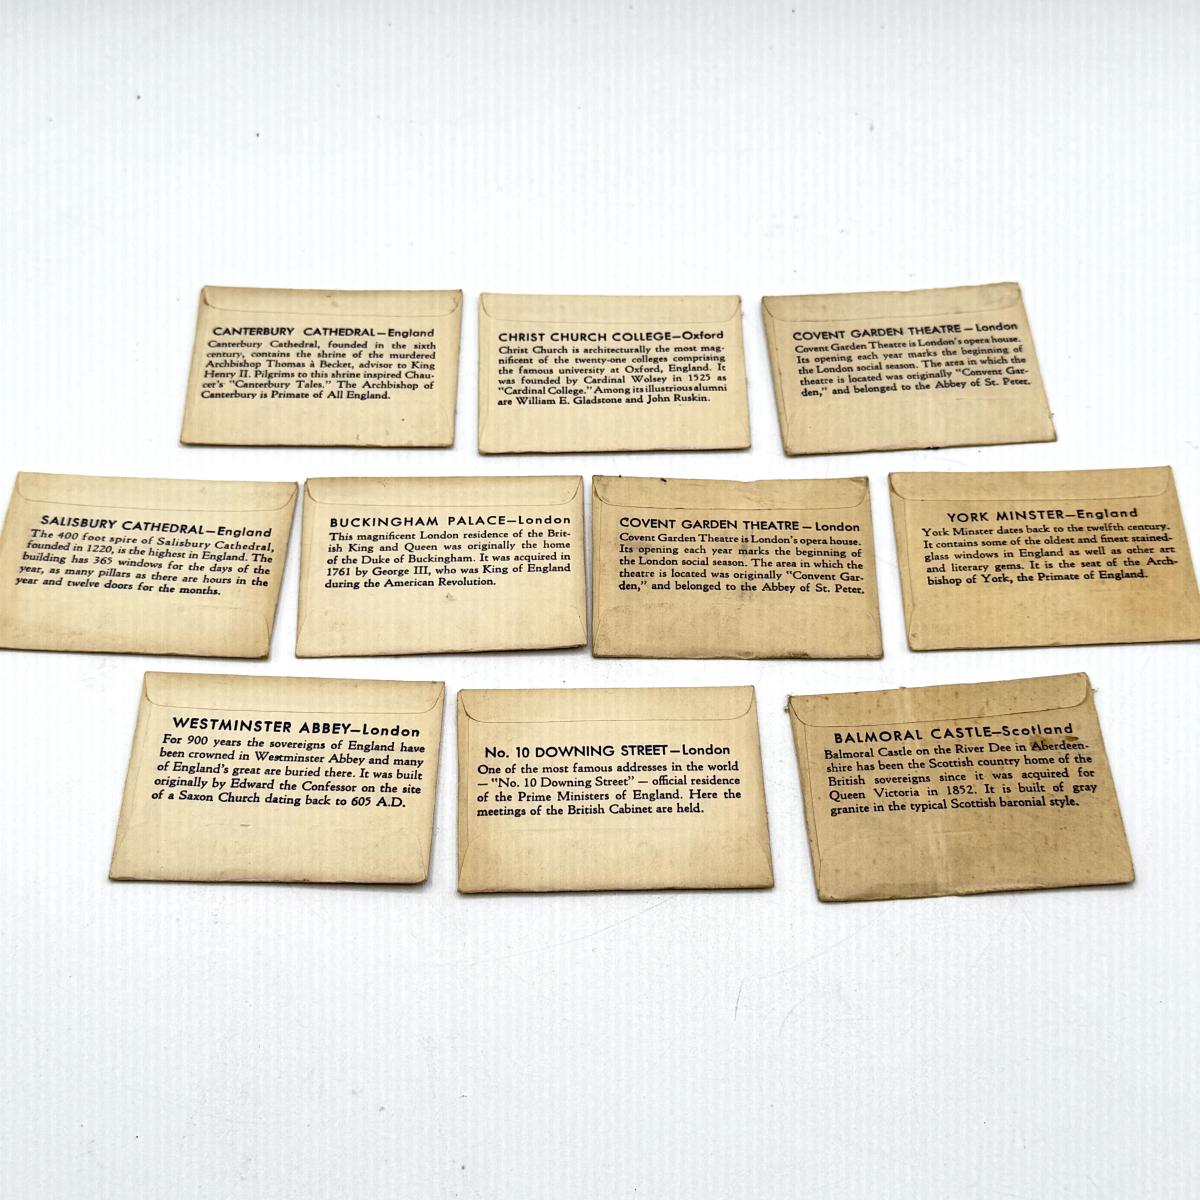 CANTERBURY CATHEDRAL—England
Canterbury Cathedral, founded in the sixth
century, contains the shrine of the murdered
Archbishop Thomas à Becket, advisor to King
Henry II. Pilgrims to this shrine inspired Chau-
cer's "Canterbury Tales." The Archbishop of
Canterbury is Primate of All England.
CHRIST CHURCH COLLEGE—Oxford
Christ Church is architecturally the most mag-
nificent of the twenty-one colleges comprising
the famous university at Oxford, England. It
was founded by Cardinal Wolsey in 1525 as
"Cardinal College." Among its illustrious alumni
are William E. Gladstone and John Ruskin.
COVENT GARDEN THEATRE—London
Covent Garden Theatre is London's opera house.
Its opening each year marks the beginning of
the London social season. The area in which the
theatre is located was originally "Convent Gar-
den," and belonged to the Abbey of St. Peter.
SALISBURY CATHEDRAL—England
The 400 foot spire of Salisbury Cathedral,
founded in 1220, is the highest in England. The
building has 365 windows for the days of the
year, as many pillars as there are hours in the
year and twelve doors for the months.
BUCKINGHAM PALACE—London
This magnificent London residence of the Brit-
ish King and Queen was originally the home
of the Duke of Buckingham. It was acquired in
1761 by George III, who was King of England
during the American Revolution.
COVENT GARDEN THEATRE—London
Covent Garden Theatre is London's opera house.
Its opening each year marks the beginning of
the London social season. The area in which the
theatre is located was originally "Convent Gar-
den," and belonged to the Abbey of St. Peter.
YORK MINSTER—England
York Minster dates back to the twelfth century.
It contains some of the oldest and finest stained-
glass windows in England as well as other art
and literary gems. It is the seat of the Arch-
bishop of York, the Primate of England.
WESTMINSTER ABBEY—London
For 900 years the sovereigns of England have
been crowned in Westminster Abbey and many
of England's great are buried there. It was built
originally by Edward the Confessor on the site
of a Saxon Church dating back to 605 A.D.
No. 10 DOWNING STREET—London
One of the most famous addresses in the world
— "No. 10 Downing Street" — official residence
of the Prime Ministers of England. Here the
meetings of the British Cabinet are held.
BALMORAL CASTLE—Scotland
Balmoral Castle on the River Dee in Aberdeen-
shire has been the Scottish country home of the
British sovereigns since it was acquired for
Queen Victoria in 1852. It is built of gray
granite in the typical Scottish baronial style.